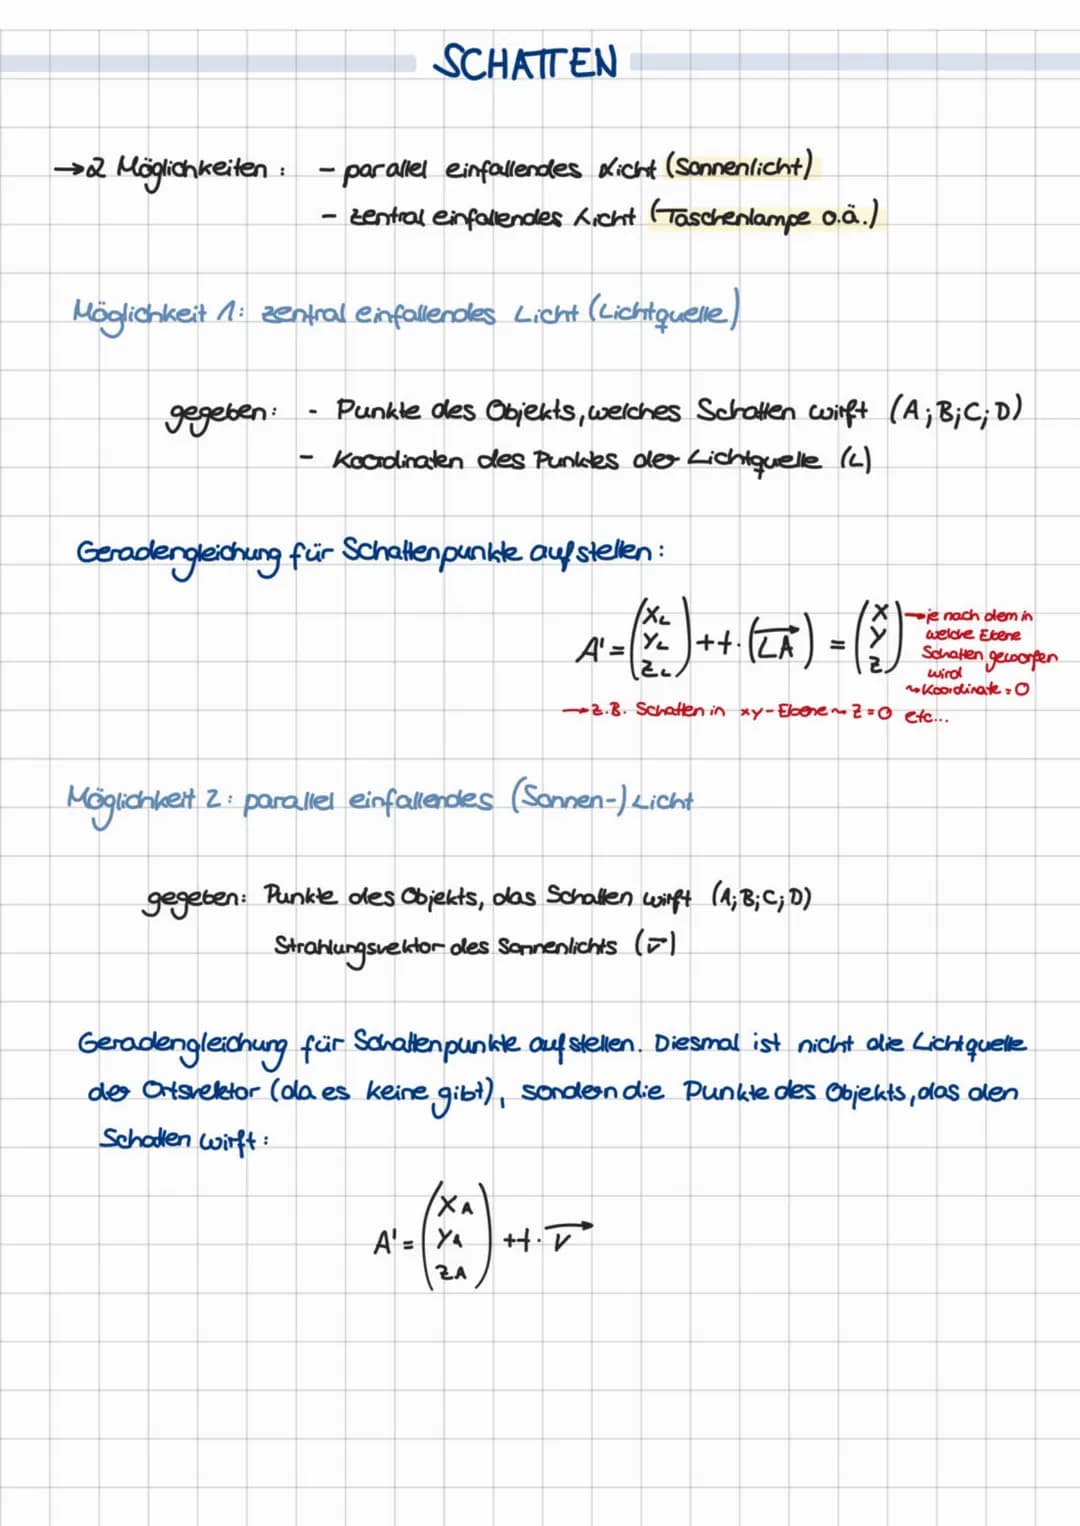 SCHATTEN
→2 Möglichkeiten : - parallel einfallendes Licht (Sonnenlicht)
- zentral einfallendes Licht (Taschenlampe o.ä.)
Möglichkeit 1: zentral einfallendes Licht (Lichtquelle)
gegeben: - Punkte des Objekts, welches Schatten wirft (A;B;C;D)
- Koordinaten des Punktes der Lichtquelle (L)
Geradengleichung für Schattenpunkte aufstellen:
A' = (x_L y_L z_L) + t · (LA→) = (x y z)
→ je nach dem in
welche Ebene
Schatten geworfen
wird
↝ Koordinate = 0
→ z.B. Schatten in xy-Ebene ↝ z = 0 etc...
Möglichkeit 2: parallel einfallendes (Sonnen-) Licht
gegeben: Punkte des Objekts, das Schatten wirft (A;B;C;D)
Strahlungsvektor des Sonnenlichts (v→)
Geradengleichung für Schattenpunkte aufstellen. Diesmal ist nicht die Lichtquelle
der Ortsvektor (da es keine gibt), sondern die Punkte des Objekts, das den
Schatten wirft:
A' = (x_A y_A z_A) + t · v→